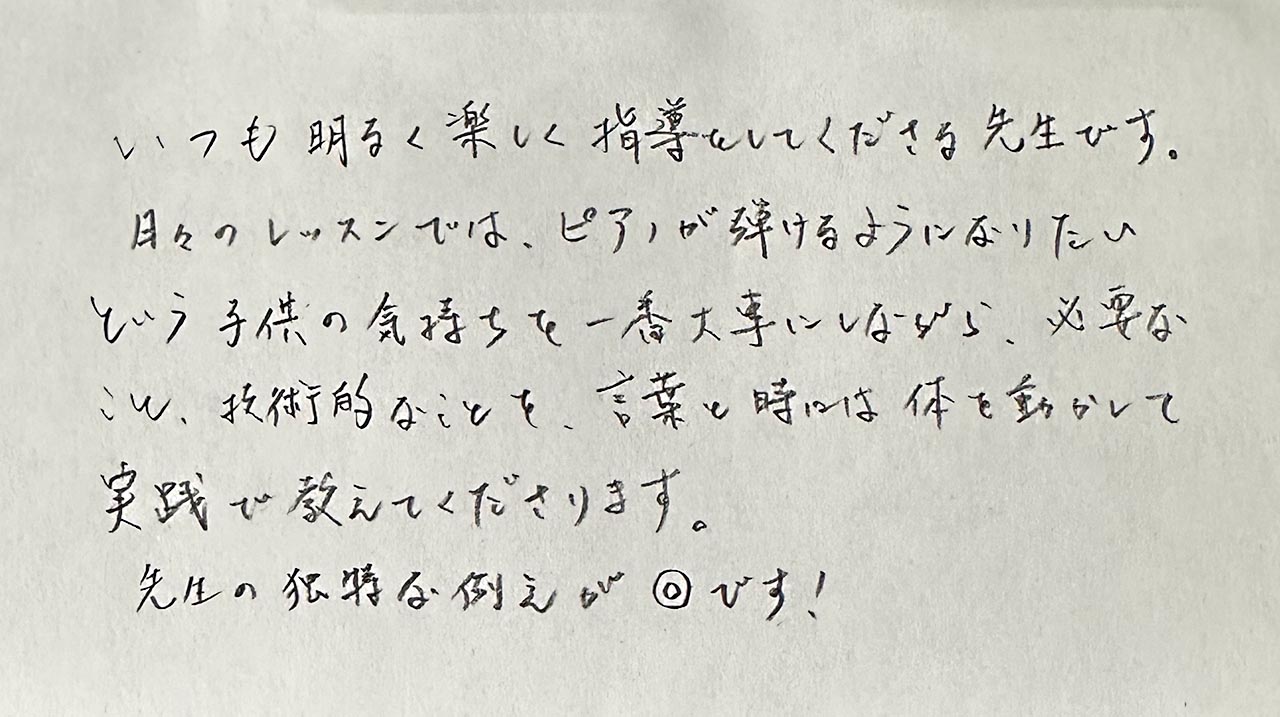 いつも明るく楽しく指導をしてくださる先生です。
日々のレッスンでは、ピアノが弾けるようになりたい
という子供の気持ちを一番大事にしながら、必要な
こと、技術的なことを、言葉と時には体を動かして
実践で教えてくださります。
先生の独特な例えが◎です！